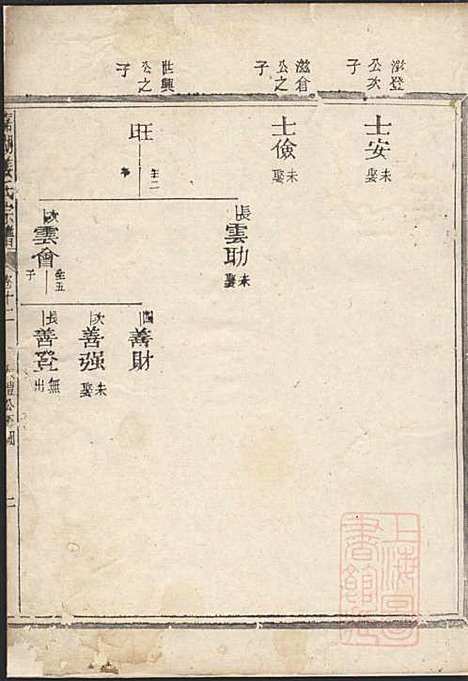 滋登公次子
士安
未娶
滋倉公之子
士儉
未娶
世興公之子
旺
生二
長
雲助
未娶
次
雲會
生五子
四
善財
次
善强
未娶
長
善登
無出
氏宗譜
卷十二
二
上海圖書館藏